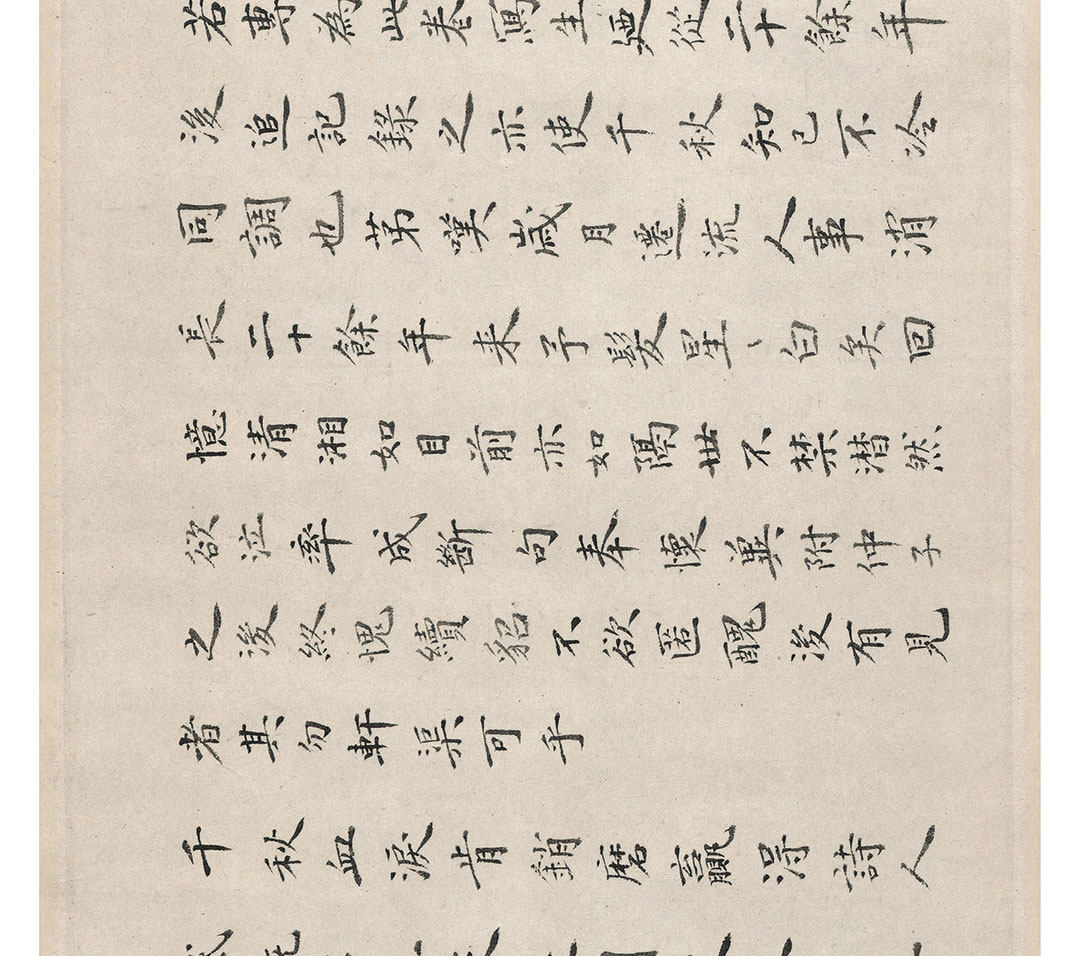 若專為此卷寫生廼從二十餘年
後追記錄之亦使千秋知己不冷
同調也苐嘆歲月遷流人事消
長二十餘年来予髮星、白矣回
憶清湘如目前亦如隔世不禁潸然
欲泣率成斷句奉懷兼附仲子
之後終愧續貂不欲匿醜後有見
者其勿軒渠可乎
千秋血淚肯銷磨贏得詩人